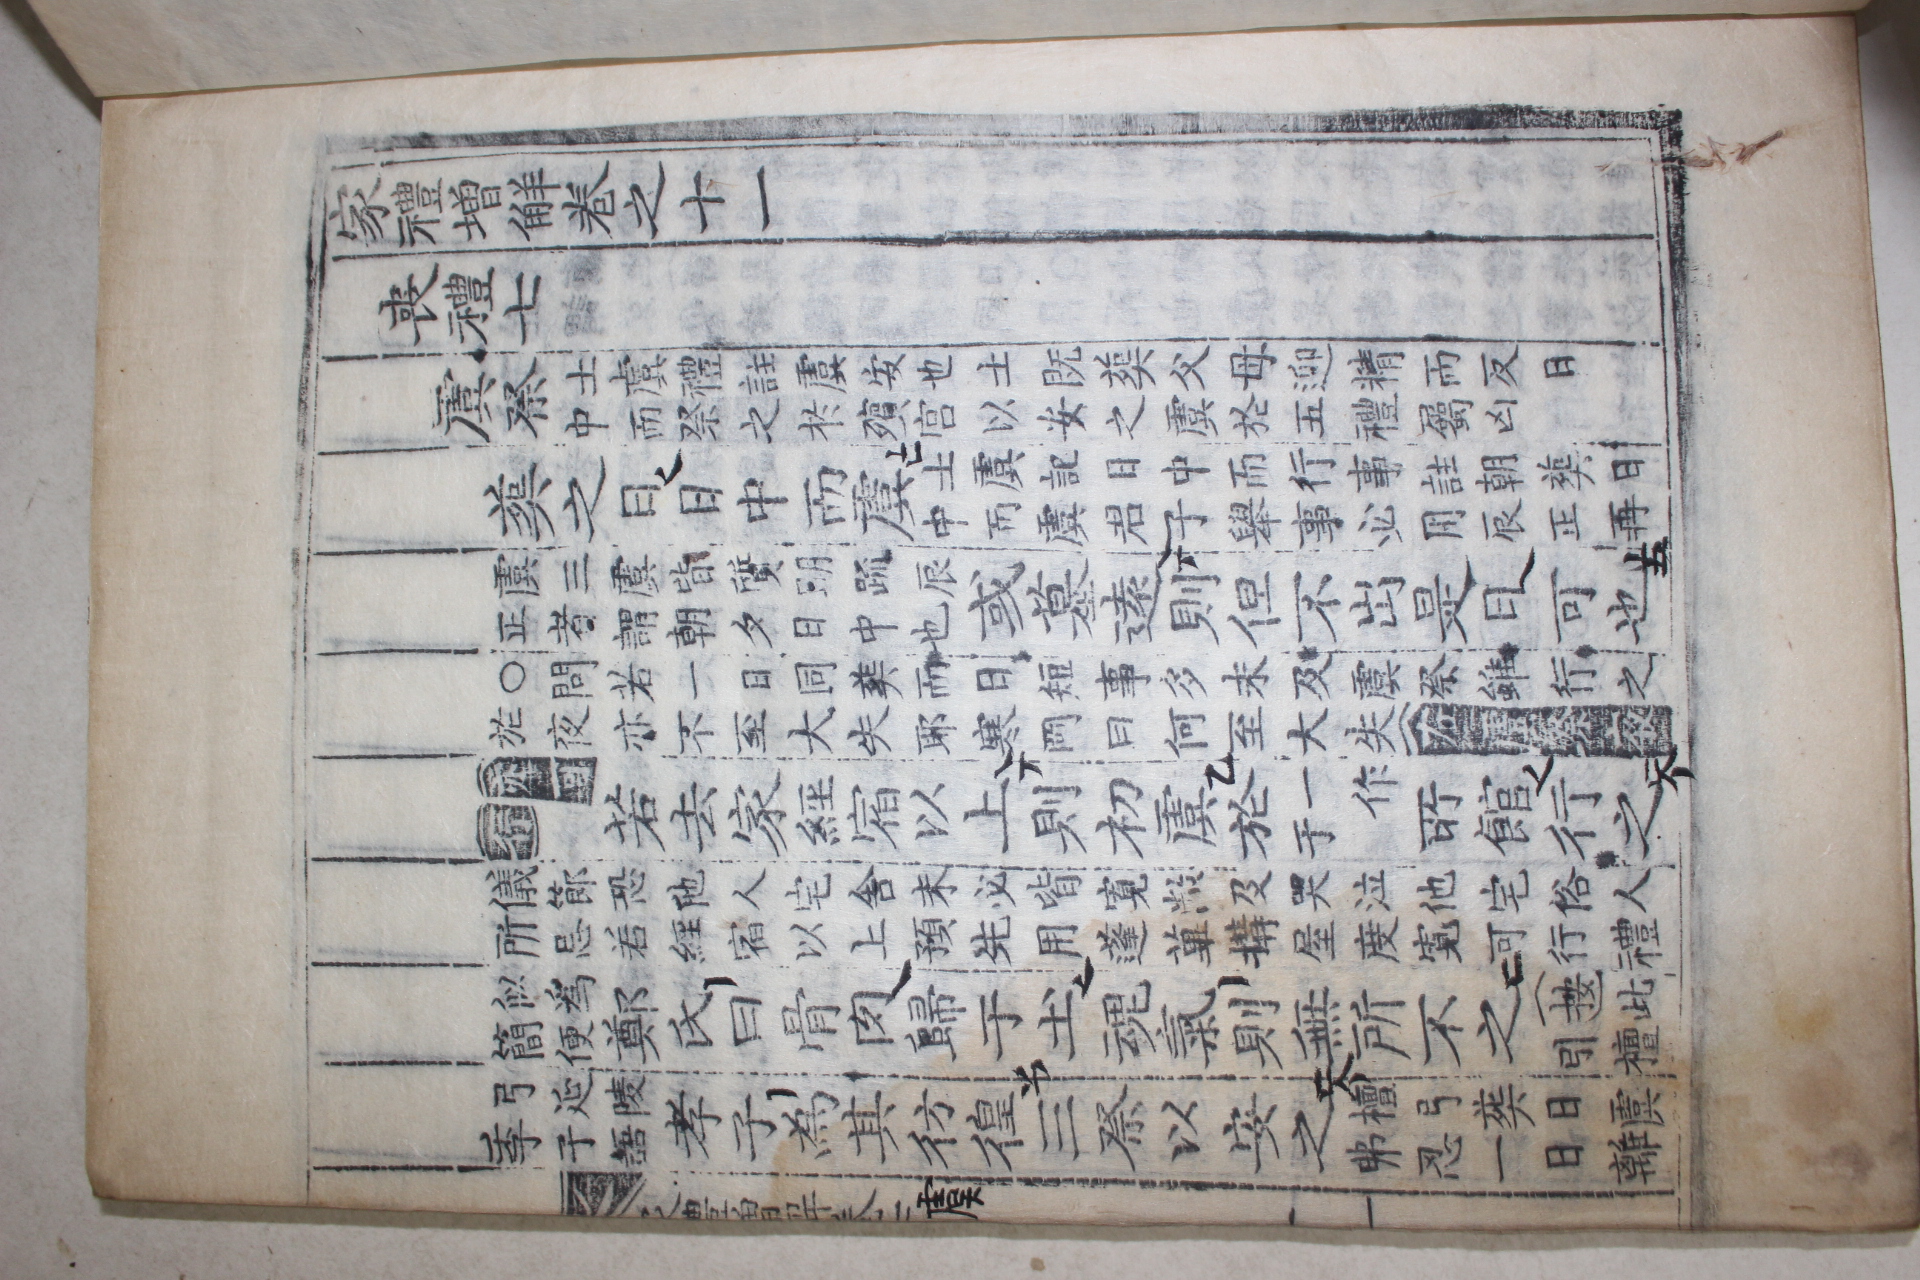 家禮增解卷之十一
喪禮七
虞祭
士虞禮註虞安也士既葬父母迎精而反日
中而祭之於殯宮以安之虞於五禮屬凶
葬之日日中而虞
士虞記日中而行事註朝葬日
中而虞君子舉事必用辰正再
虞三虞皆質明疏辰
正者謂朝夕日中也
或墓遠則但不出是日可也
○問若一日同葬而日短事多未及虞祭雖行之
於夜亦不至大失耶寒岡曰何至大失
若去家經宿以上則初虞於
一作
于
所館行之
儀節恐他人宅舍未必皆寬敞及哭泣他宅俗人
所忌若經宿以上預先用蓬蓽搆屋度寬可行禮
似爲
簡便
鄭氏曰骨肉歸于土魂氣則無所不之
按此
引檀
弓延陵
季子語
孝子為其彷徨三祭以安之
檀弓葬日虞
弗忍一日離
虞